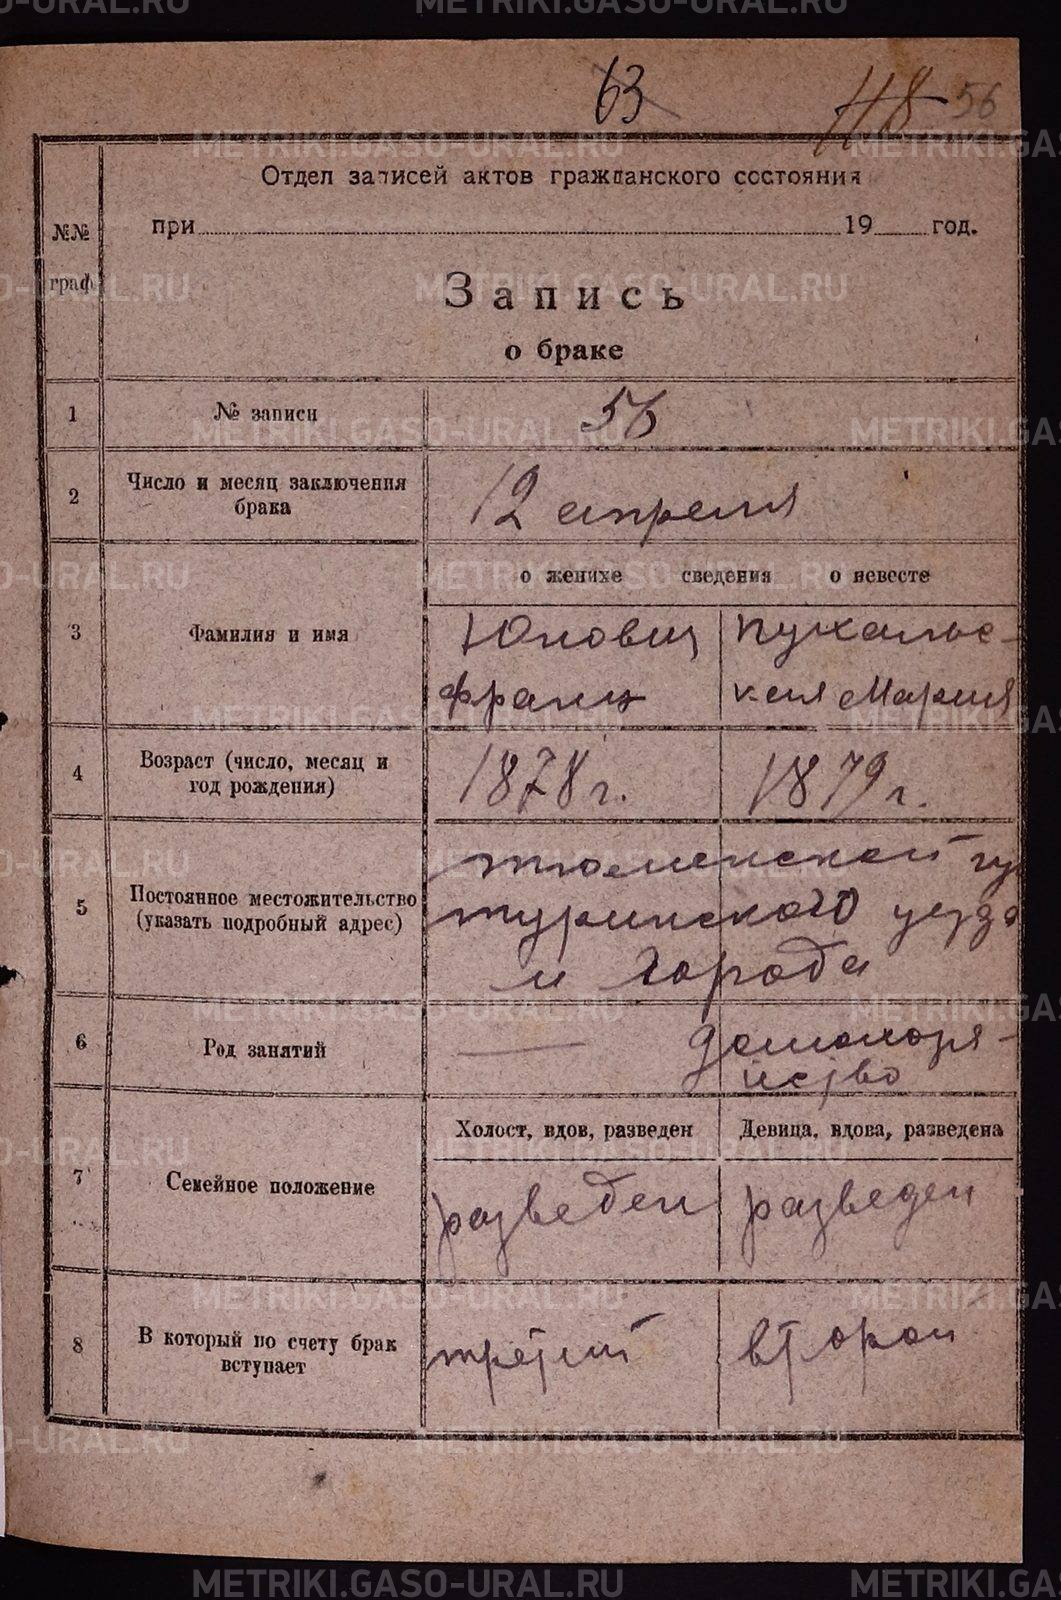 63 118 56
Отдел записей актов гражданского состояния
№№
граф
при 19 год.
Запись
о браке
1 № записи 56
2 Число и месяц заключения
брака
12 апреля
о женихе сведения о невесте
3 Фамилия и имя
Юнович Пухальс-
Франц кая Мария
4 Возраст (число, месяц и
год рождения)
1878 г. 1879 г.
5 Постоянное местожительство
(указать подробный адрес)
тюменской гу
туринского уезда
и города
6 Род занятий
— домохозя-
йство
Холост, вдов, разведен Девица, вдова, разведена
7 Семейное положение
разведен разведен
8 В который по счету брак
вступает
третий второй
METRIKI.GASO-URAL.RU